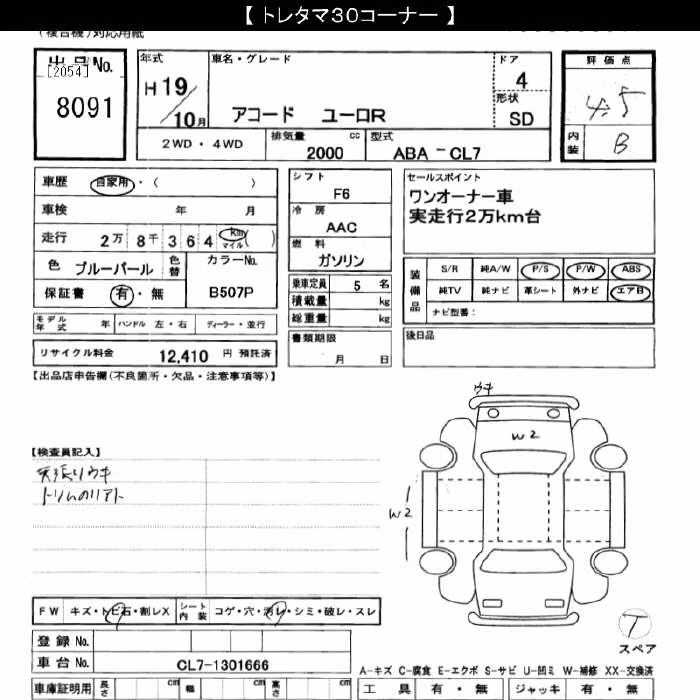 【 トレタマ30コーナー 】
(複合機)対応用紙
出品No.
[2054]
8091
年式
H 19/10月
車名・グレード
アコード ユーロR
ドア
4
形状
SD
評価点
4.5
内装
B
2WD・4WD
排気量 cc
2000
型式
ABA-CL7
車歴 自家用・( )
車検 年 月
走行 2万 8千 3 6 4 km マイル ( )
色 ブルーパール 色替
カラーNo.
B507P
保証書 有・無
モデル年式 年 ハンドル 左・右 ディーラー・並行
リサイクル料金 12,410 円 預託済
シフト
F6
冷房
AAC
燃料
ガソリン
乗車定員 5 名
積載量 kg
総重量 kg
書類期限
月 日
セールスポイント
ワンオーナー車
実走行2万km台
装備品
S/R 純A/W P/S P/W ABS
純TV 純ナビ 革シート 外ナビ エアB
ナビ型番:
後日品
【出品店申告欄(不良箇所・欠品・注意事項等)】
【検査員記入】
天張りウキ
ウキ
W2
W2
FW キズ・トビ石・割レX
シート内装 コゲ・穴・汚レ・シミ・破レ・スレ
T
スペア
登録No.
車台No. CL7-1301666
A-キズ C-腐食 E-エクボ S-サビ U-凹ミ W-補修 XX-交換済
車庫証明用 長さ cm 幅 cm 高さ cm
工具 有・無 ジャッキ 有・無